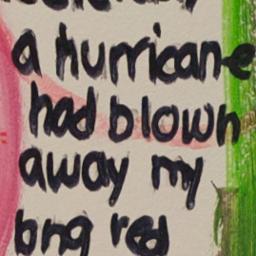 a hurricane
had blown
away my
long red